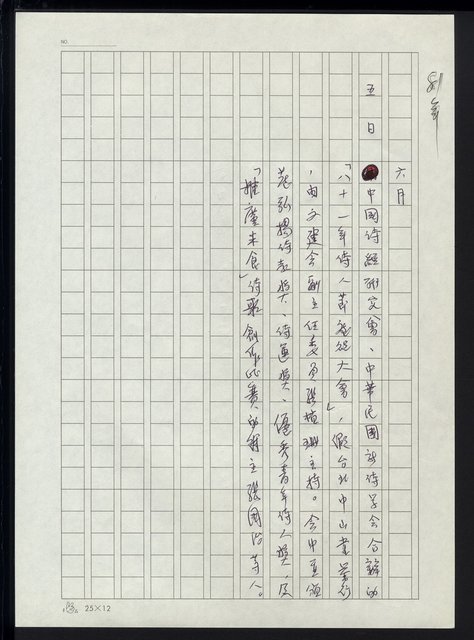 NO.
81年
六月
五日 中國詩經研究會、中華民國新詩學會合辦的
「八十一年詩人節慶祝大會」,假台北中山堂舉行
,由文建會副主任委員張植珊主持。會中並頒
發弘揚詩教獎、詩運獎、優秀青年詩人獎,及
「推廣米食」詩歌創作比賽的得主張國治等人。
25×12